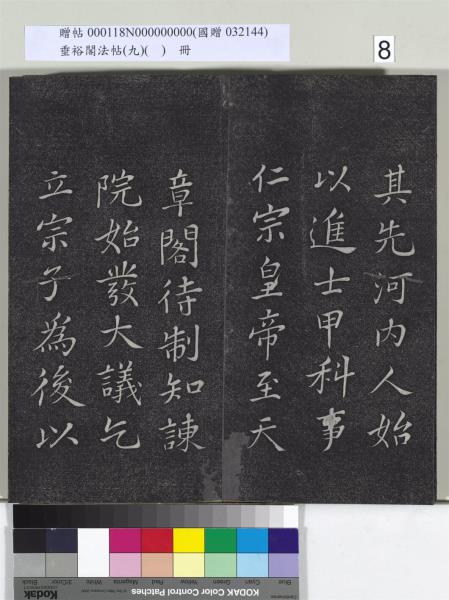 贈帖 000118N000000000(國贈 032144)
垂裕閣法帖(九)( ) 冊
8
其先河內人始
以進士甲科事
仁宗皇帝至天
章閣待制知諫
院始發大議乞
立宗子為後以
Blue Cyan Green Yellow Red Magenta White 3/Color Black
Kodak KODAK Color Control Patches